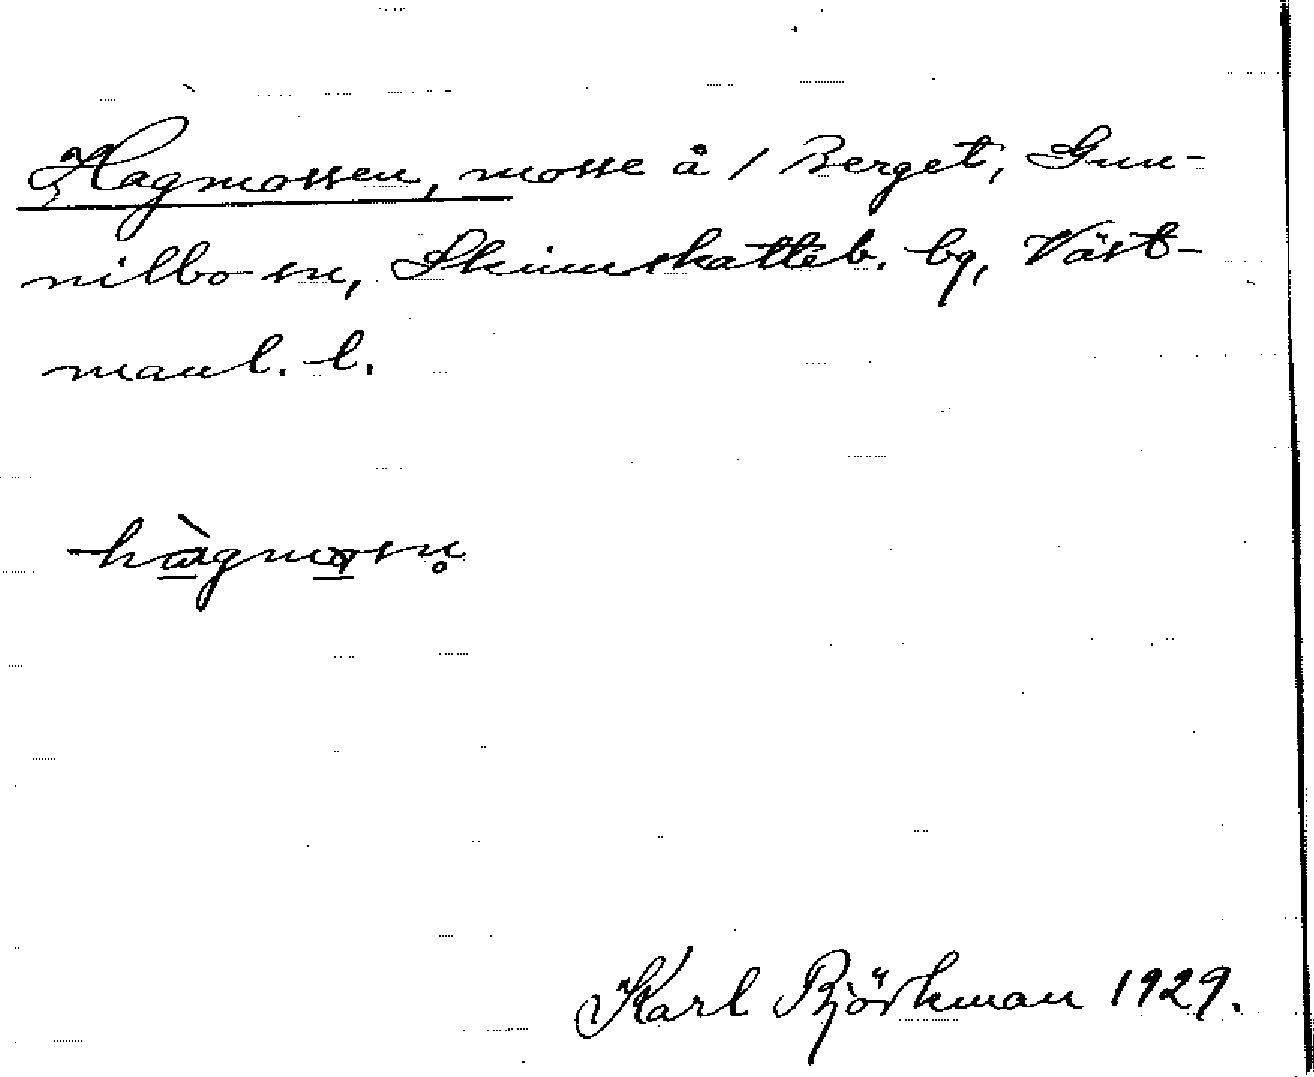 Hagmossen, mosse å / Berget, Gun-
nilbo sn, Skinnskatteb. bg, Väst-
manl. l.
hàgmosn̥
Karl Björkman 1929.